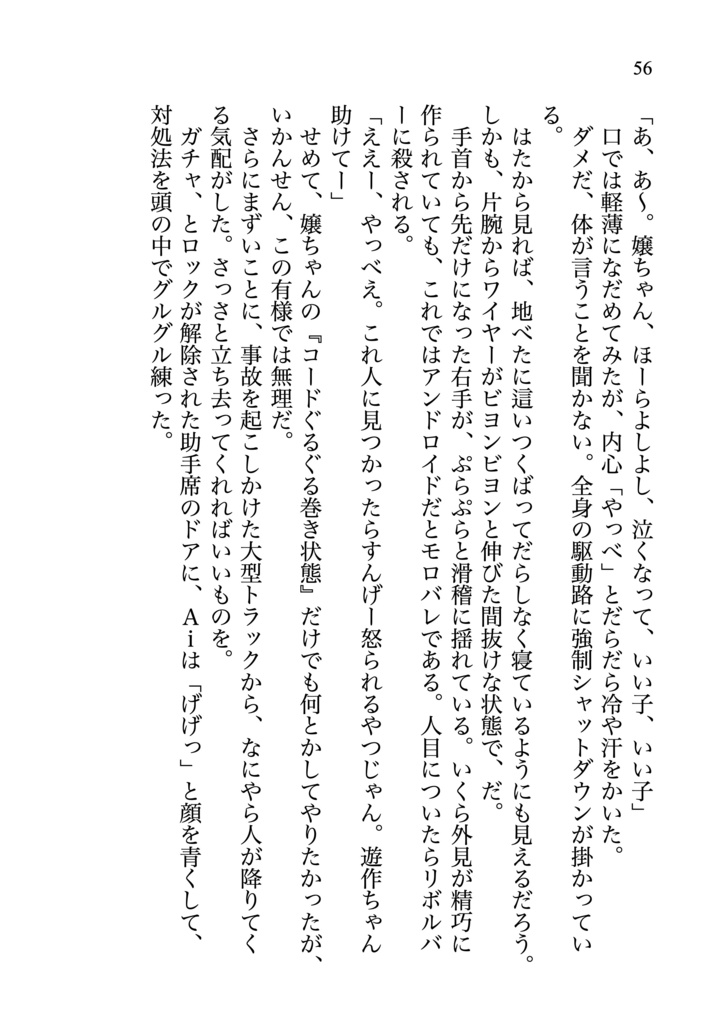 56
「あ、あ～。嬢ちゃん、ほーらよしよし、泣くなって、いい子、いい子」
口では軽薄になだめてみたが、内心「やっべ」とだらだら冷や汗をかいた。
ダメだ、体が言うことを聞かない。全身の駆動路に強制シャットダウンが掛かってい
る。
はたから見れば、地べたに這いつくばってだらしなく寝ているようにも見えるだろう。
しかも、片腕からワイヤーがビヨンビヨンと伸びた間抜けな状態で、だ。
手首から先だけになった右手が、ぷらぷらと滑稽に揺れている。いくら外見が精巧に
作られていても、これではアンドロイドだとモロバレである。人目についたらリボルバ
ーに殺される。
「ええー、やっべえ。これ人に見つかったらすんげー怒られるやつじゃん。遊作ちゃん
助けてー」
せめて、嬢ちゃんの『コードぐるぐる巻き状態』だけでも何とかしてやりたかったが、
いかんせん、この有様では無理だ。
さらにまずいことに、事故を起こしかけた大型トラックから、なにやら人が降りてく
る気配がした。さっさと立ち去ってくれればいいものを。
ガチャ、とロックが解除された助手席のドアに、Ａｉは「げげっ」と顔を青くして、
対処法を頭の中でグルグル練った。